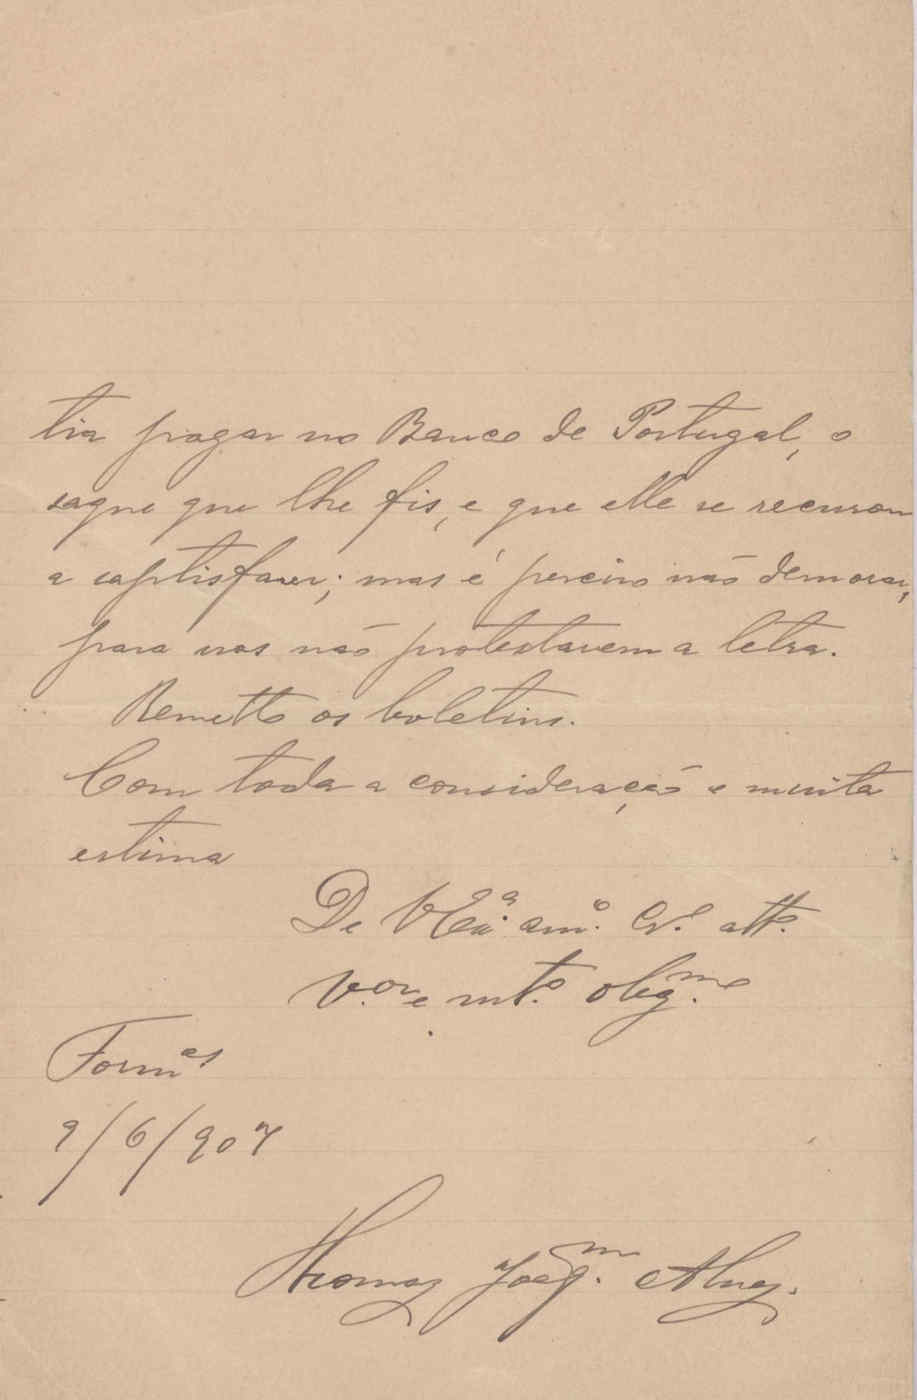 tia pagar no Banco de Portugal, o
saque que lhe fis, e que elle se recusou
a saptisfazer; mas é perciso não demorar,
para nos não protestarem a letra.
Remetto os boletins.
Com toda a consideração e muita
estima
De V Exª. amº. Crº. attº.
V.ºr e mtº. obrigmº.
Forn.es
9/6/907
Thomaz Joaqm. Alvez.